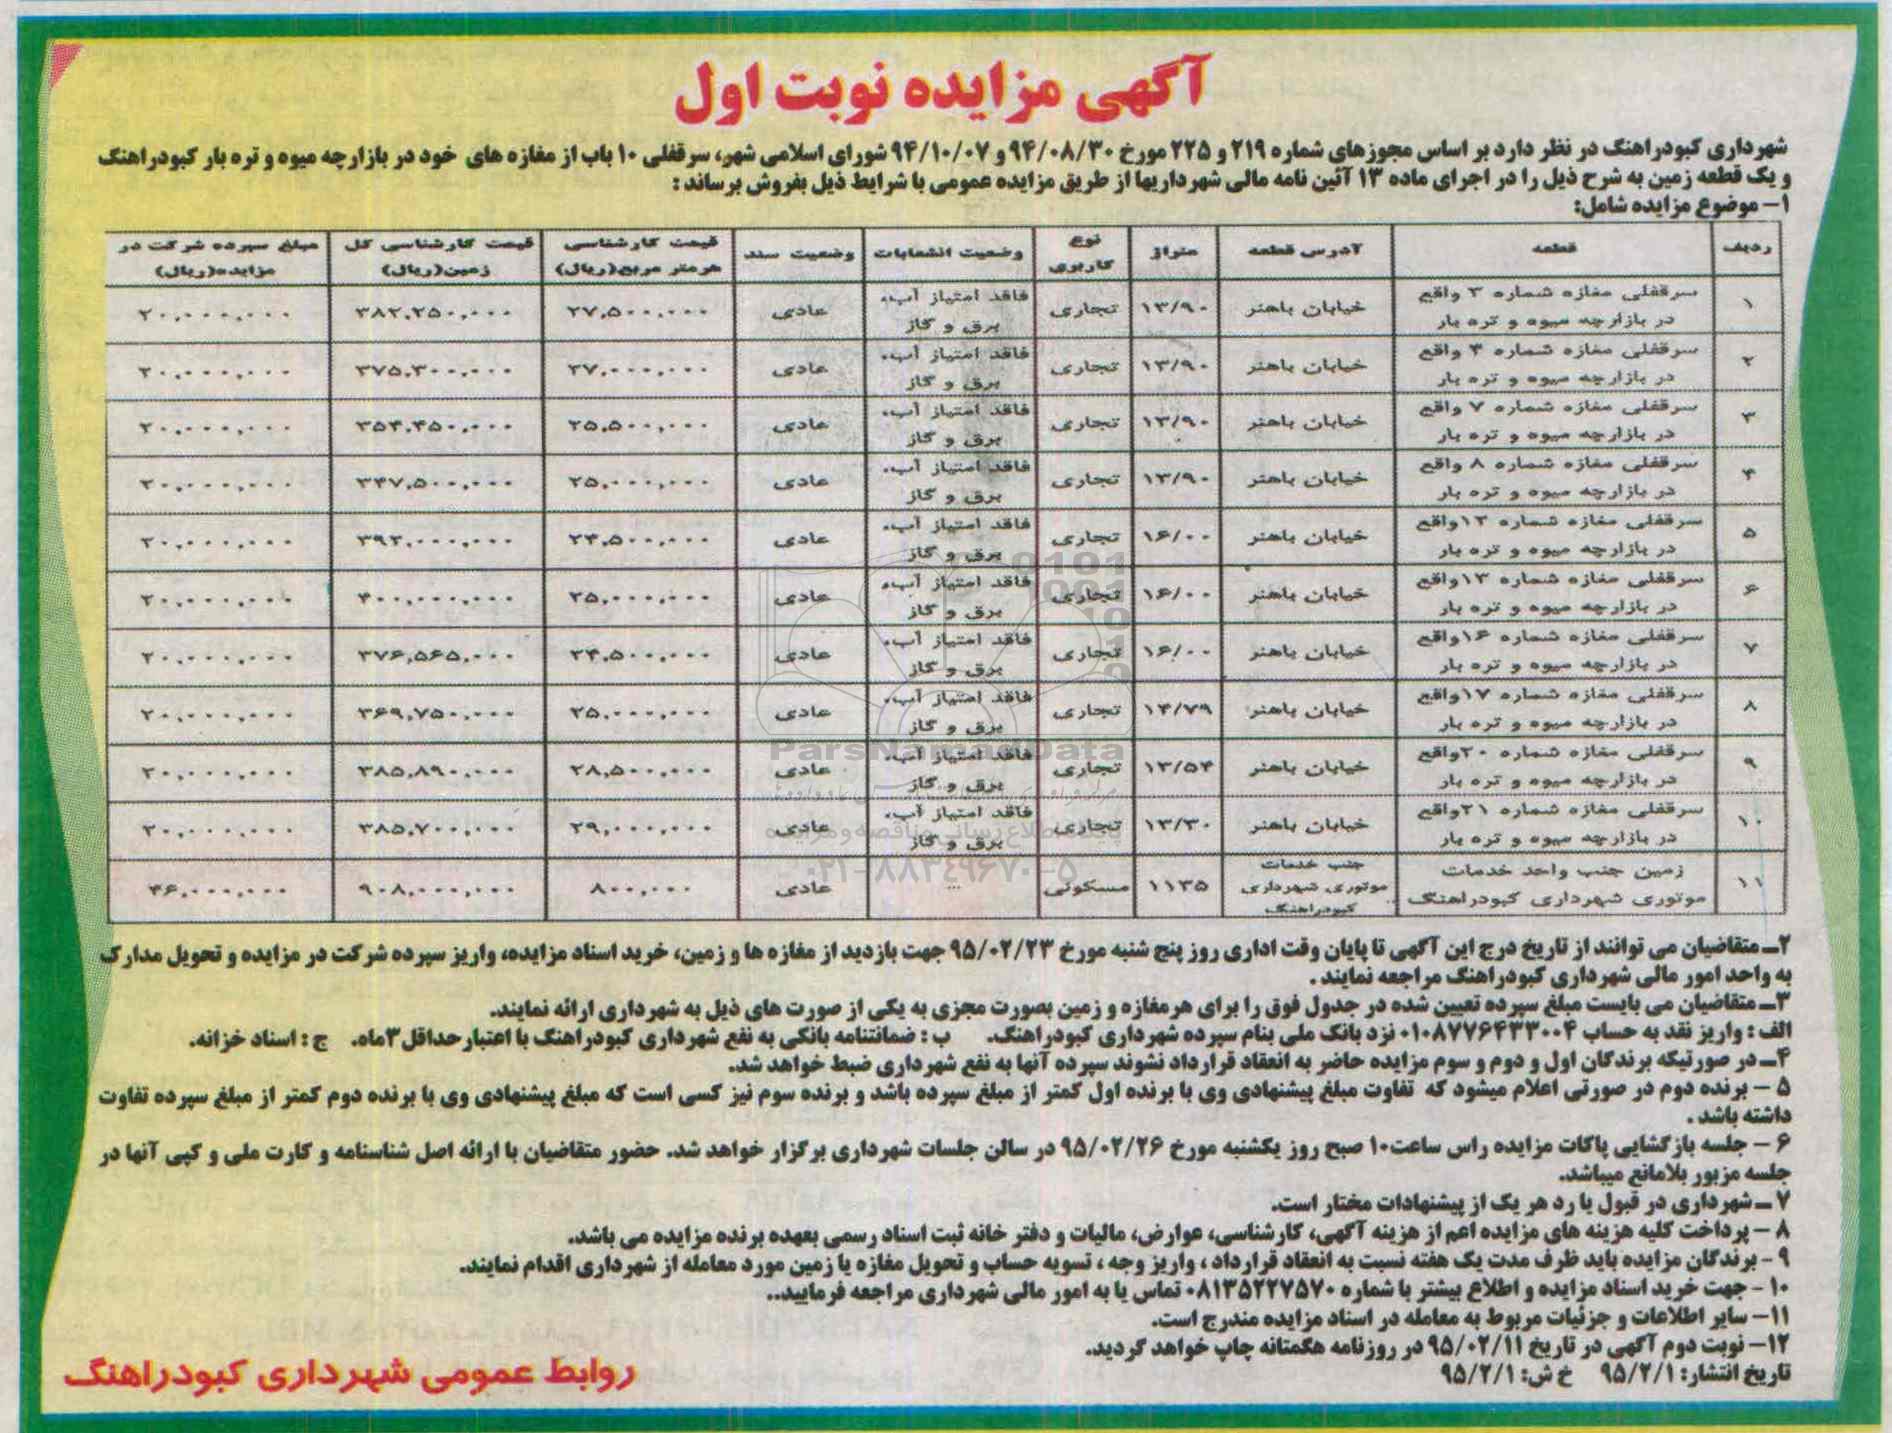 آگهی مزایده نوبت اول
شهرداری کبودراهنگ در نظر دارد بر اساس مجوزهای شماره ۲۱۹ و ۲۲۵ مورخ ۹۴/۰۸/۳۰ و ۹۴/۱۰/۰۷ شورای اسلامی شهر، سرقفلی ۱۰ باب از مغازه های خود در بازارچه میوه و تره بار کبودراهنگ
و یک قطعه زمین به شرح ذیل را در اجرای ماده ۱۳ آئین نامه مالی شهرداریها از طریق مزایده عمومی با شرایط ذیل بفروش برساند :
۱– موضوع مزایده شامل:
ردیف | قطعه | آدرس قطعه | متراژ | نوع کاربری | وضعیت انشعابات | وضعیت سند | قیمت کارشناسی هرمتر مربع(ریال) | قیمت کارشناسی کل زمین(ریال) | مبلغ سپرده شرکت در مزایده(ریال)
۱ | سرقفلی مغازه شماره ۳ واقع در بازارچه میوه و تره بار | خیابان باهنر | ۱۳/۹۰ | تجاری | فاقد امتیاز آب، برق و گاز | عادی | ۲۷,۵۰۰,۰۰۰ | ۳۸۲,۲۵۰,۰۰۰ | ۲۰,۰۰۰,۰۰۰
۲ | سرقفلی مغازه شماره ۴ واقع در بازارچه میوه و تره بار | خیابان باهنر | ۱۳/۹۰ | تجاری | فاقد امتیاز آب، برق و گاز | عادی | ۲۷,۰۰۰,۰۰۰ | ۳۷۵,۳۰۰,۰۰۰ | ۲۰,۰۰۰,۰۰۰
۳ | سرقفلی مغازه شماره ۷ واقع در بازارچه میوه و تره بار | خیابان باهنر | ۱۳/۹۰ | تجاری | فاقد امتیاز آب، برق و گاز | عادی | ۲۵,۵۰۰,۰۰۰ | ۳۵۴,۴۵۰,۰۰۰ | ۲۰,۰۰۰,۰۰۰
۴ | سرقفلی مغازه شماره ۸ واقع در بازارچه میوه و تره بار | خیابان باهنر | ۱۳/۹۰ | تجاری | فاقد امتیاز آب، برق و گاز | عادی | ۲۵,۰۰۰,۰۰۰ | ۳۴۷,۵۰۰,۰۰۰ | ۲۰,۰۰۰,۰۰۰
۵ | سرقفلی مغازه شماره ۱۲واقع در بازارچه میوه و تره بار | خیابان باهنر | ۱۶/۰۰ | تجاری | فاقد امتیاز آب، برق و گاز | عادی | ۲۴,۵۰۰,۰۰۰ | ۳۹۲,۰۰۰,۰۰۰ | ۲۰,۰۰۰,۰۰۰
۶ | سرقفلی مغازه شماره ۱۳واقع در بازارچه میوه و تره بار | خیابان باهنر | ۱۶/۰۰ | تجاری | فاقد امتیاز آب، برق و گاز | عادی | ۲۵,۰۰۰,۰۰۰ | ۴۰۰,۰۰۰,۰۰۰ | ۲۰,۰۰۰,۰۰۰
۷ | سرقفلی مغازه شماره ۱۶واقع در بازارچه میوه و تره بار | خیابان باهنر | ۱۶/۰۰ | تجاری | فاقد امتیاز آب، برق و گاز | عادی | ۲۴,۵۰۰,۰۰۰ | ۳۷۶,۵۶۵,۰۰۰ | ۲۰,۰۰۰,۰۰۰
۸ | سرقفلی مغازه شماره ۱۷واقع در بازارچه میوه و تره بار | خیابان باهنر | ۱۴/۷۹ | تجاری | فاقد امتیاز آب، برق و گاز | عادی | ۲۵,۰۰۰,۰۰۰ | ۳۶۹,۷۵۰,۰۰۰ | ۲۰,۰۰۰,۰۰۰
۹ | سرقفلی مغازه شماره ۲۰واقع در بازارچه میوه و تره بار | خیابان باهنر | ۱۳/۵۴ | تجاری | فاقد امتیاز آب، برق و گاز | عادی | ۲۸,۵۰۰,۰۰۰ | ۳۸۵,۸۹۰,۰۰۰ | ۲۰,۰۰۰,۰۰۰
۱۰ | سرقفلی مغازه شماره ۲۱واقع در بازارچه میوه و تره بار | خیابان باهنر | ۱۳/۳۰ | تجاری | فاقد امتیاز آب، برق و گاز | عادی | ۲۹,۰۰۰,۰۰۰ | ۳۸۵,۷۰۰,۰۰۰ | ۲۰,۰۰۰,۰۰۰
۱۱ | زمین جنب واحد خدمات موتوری شهرداری کبودراهنگ | جنب خدمات موتوری شهرداری کبودراهنگ | ۱۱۳۵ | مسکونی | ... | عادی | ۸۰۰,۰۰۰ | ۹۰۸,۰۰۰,۰۰۰ | ۴۶,۰۰۰,۰۰۰
ParsNamadData
۰۲۱-۸۸۳٤۹۶۷۰-۵
۲ــ متقاضیان می توانند از تاریخ درج این آگهی تا پایان وقت اداری روز پنج شنبه مورخ ۹۵/۰۲/۲۳ جهت بازدید از مغازه ها و زمین، خرید اسناد مزایده، واریز سپرده شرکت در مزایده و تحویل مدارک
به واحد امور مالی شهرداری کبودراهنگ مراجعه نمایند .
۳ــ متقاضیان می بایست مبلغ سپرده تعیین شده در جدول فوق را برای هرمغازه و زمین بصورت مجزی به یکی از صورت های ذیل به شهرداری ارائه نمایند.
الف : واریز نقد به حساب ۰۱۰۸۷۷۶۴۳۳۰۰۴ نزد بانک ملی بنام سپرده شهرداری کبودراهنگ. ب : ضمانتنامه بانکی به نفع شهرداری کبودراهنگ با اعتبار حداقل ۳ماه. ج : اسناد خزانه.
۴ــ در صورتیکه برندگان اول و دوم و سوم مزایده حاضر به انعقاد قرارداد نشوند سپرده آنها به نفع شهرداری ضبط خواهد شد.
۵ – برنده دوم در صورتی اعلام میشود که تفاوت مبلغ پیشنهادی وی با برنده اول کمتر از مبلغ سپرده باشد و برنده سوم نیز کسی است که مبلغ پیشنهادی وی با برنده دوم کمتر از مبلغ سپرده تفاوت
داشته باشد .
۶ – جلسه بازگشایی پاکات مزایده راس ساعت۱۰ صبح روز یکشنبه مورخ ۹۵/۰۲/۲۶ در سالن جلسات شهرداری برگزار خواهد شد. حضور متقاضیان با ارائه اصل شناسنامه و کارت ملی و کپی آنها در
جلسه مزبور بلامانع میباشد.
۷ ــ شهرداری در قبول یا رد هر یک از پیشنهادات مختار است.
۸ – پرداخت کلیه هزینه های مزایده اعم از هزینه آگهی، کارشناسی، عوارض، مالیات و دفتر خانه ثبت اسناد رسمی بعهده برنده مزایده می باشد.
۹ - برندگان مزایده باید ظرف مدت یک هفته نسبت به انعقاد قرارداد ، واریز وجه ، تسویه حساب و تحویل مغازه یا زمین مورد معامله از شهرداری اقدام نمایند.
۱۰ - جهت خرید اسناد مزایده و اطلاع بیشتر با شماره ۰۸۱۳۵۲۲۷۵۷۰ تماس یا به امور مالی شهرداری مراجعه فرمایید..
۱۱– سایر اطلاعات و جزئیات مربوط به معامله در اسناد مزایده مندرج است.
۱۲– نوبت دوم آگهی در تاریخ ۹۵/۰۲/۱۱ در روزنامه هگمتانه چاپ خواهد گردید.
تاریخ انتشار: ۹۵/۲/۱ خ ش: ۹۵/۲/۱
روابط عمومی شهرداری کبودراهنگ